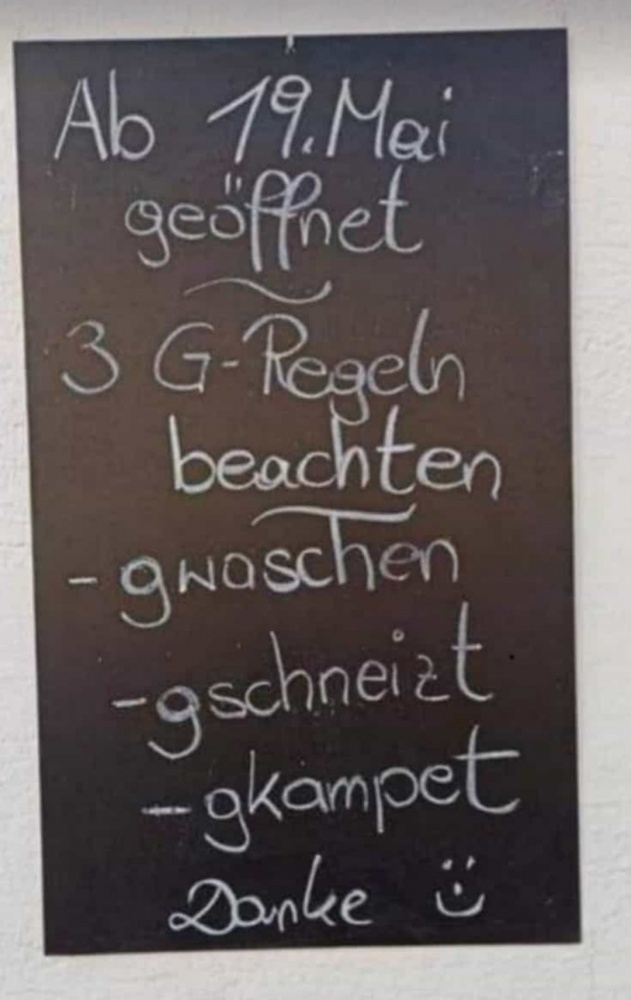 Ab 19. Mai
geöffnet
3 G-Regeln
beachten
- gwaschen
- gschneizt
- gkampet
Danke